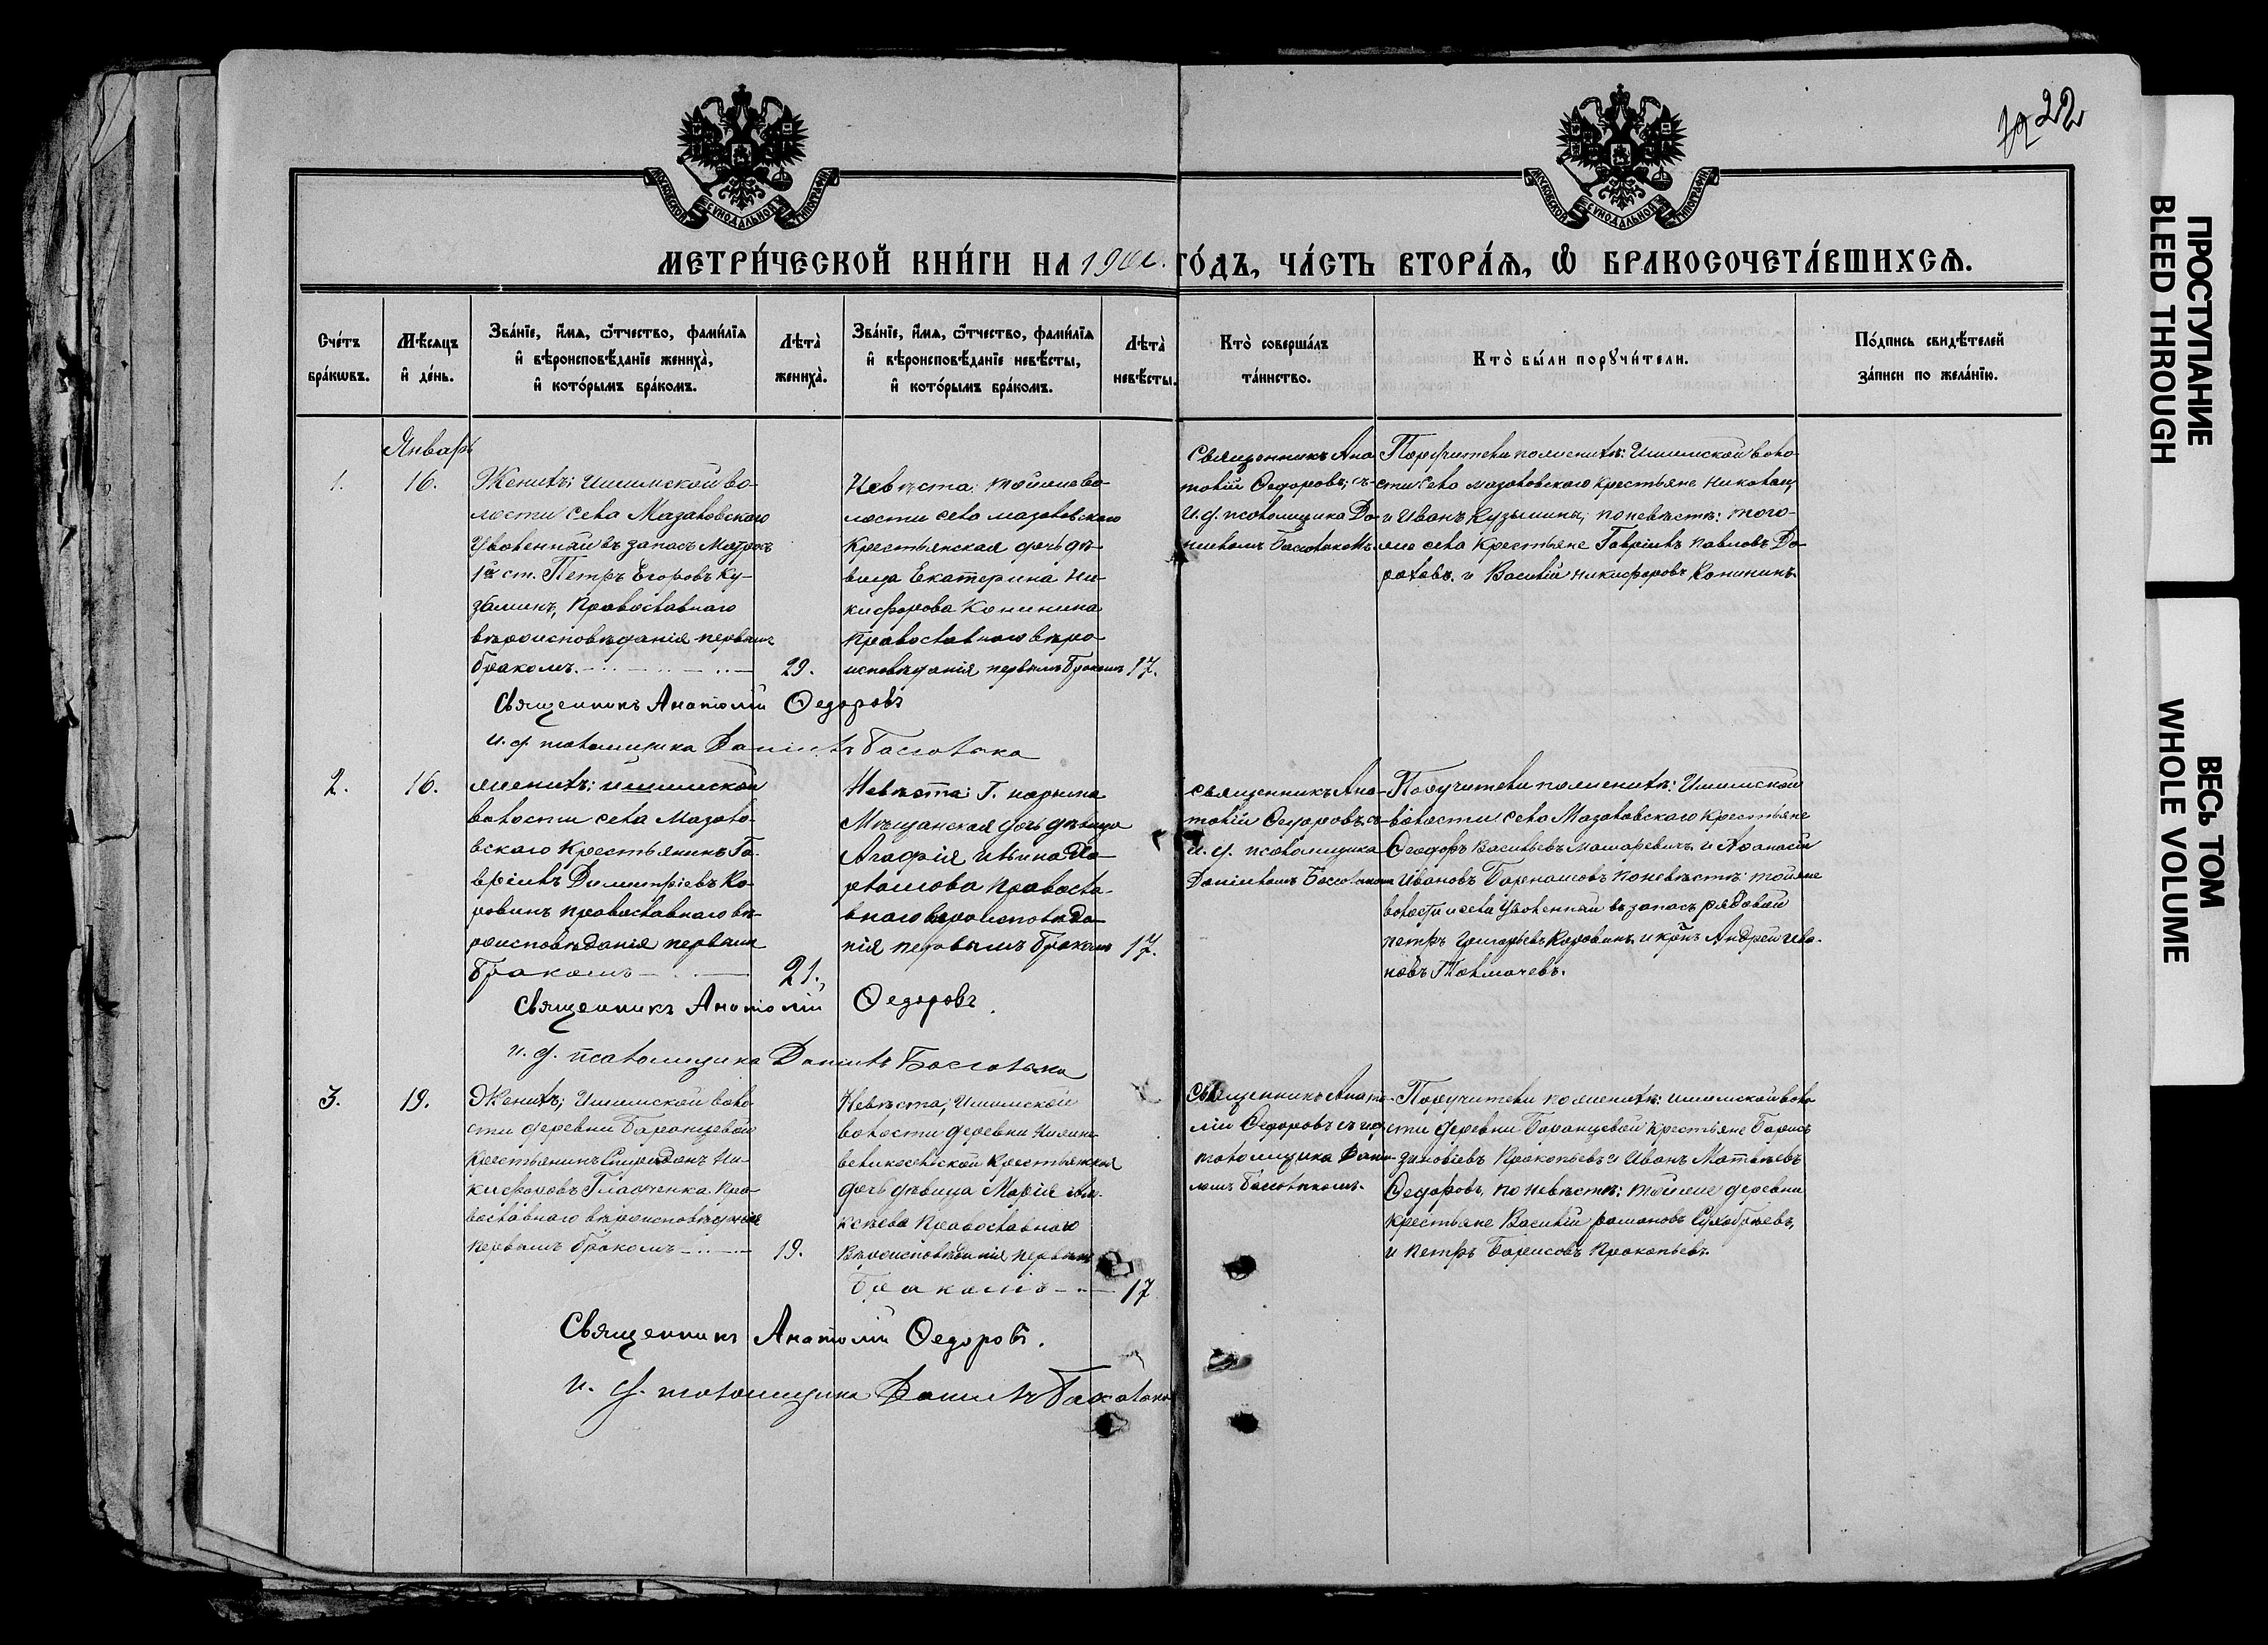 22
МОСКОВСКОЙ СѴНОДАЛЬНОЙ ТИПОГРАФІИ
МОСКОВСКОЙ СѴНОДАЛЬНОЙ ТИПОГРАФІИ
МЕТРИ́ЧЕСКОЙ КНИ́ГИ НА 190 ГО́ДЪ, ЧА́СТЬ ВТОРА́Ѧ, Ѽ БРАКОСОЧЕТА́ВШИХСѦ.
Сче́тъ бра́кѡвъ.
Мѣ́сяцъ и де́нь.
Зва́нїе, и́мѧ, ѻ҆́тчество, фами́лїѧ
и҆ вѣроисповѣ́данїе жениха̀,
и҆ кото́рымъ бра́комъ.
Лѣта̀ жениха̀.
Зва́нїе, и́мѧ, ѻ҆́тчество, фами́лїѧ
и҆ вѣроисповѣ́данїе невѣ́сты,
и҆ кото́рымъ бра́комъ.
Лѣта̀ невѣ́сты.
Кто̀ соверша́лъ
та́инство.
Кто̀ бы́ли порꙋчи́тели.
По́дпись свидѣ́телей
за́писи по жела́нїю.
Январь
1.
16.
Женихъ: Ишимской во-
лости села Мазаловскаго
Уволенный въ запасъ Матросъ
1й ст. Петръ Егоровъ Ку-
зьминъ, Православнаго
вѣроисповѣданія первымъ
бракомъ.
29.
Невѣста: тойже во-
лости села мазаловскаго
Крестьянская дочь дѣ-
вица Екатерина Ни-
кифорова Конинина
Православнаго вѣро-
исповѣданія первымъ бракомъ
17.
Священникъ Ана-
толій Ѳедоровъ, съ
И. д. псаломщика Да-
ніиломъ
Поручители по женихѣ: Ишимской воло-
сти села мазаловскаго крестьяне Николай
и Иванъ Кузьмины; по невѣстѣ: того-
же села крестьяне Гавріилъ Павловъ До-
роховъ и Василій Никифоровъ Конининъ
Священникъ Анатолій Ѳедоровъ
И. д. псаломщика Даніилъ
2.
16.
женихъ: ишимской
волости села Мазало-
вскаго Крестьянинъ Га-
вріилъ Димитріевъ Ко-
ровинъ православнаго вѣ-
роисповѣданія первымъ
бракомъ
21.
Невѣста: Г. нарыма
Мѣщанская дочь дѣвица
Агафія Ильина
правосла-
внаго вѣроисповѣда-
нія первымъ бракомъ
17.
Священникъ Ана-
толій Ѳедоровъ съ
и. д. псаломщика
Даніиломъ
Поручители по женихѣ: Ишимской
волости села Мазаловскаго крестьяне
Ѳеодоръ Васильевъ Макаревичъ и Аѳанасій
Ивановъ по невѣстѣ: тойже
волости и села Уволенный въ запасъ рядовой
петръ Григорьевъ Коровинъ и крнъ Андрей Ива-
новъ Толмачевъ.
Священникъ Анатолій Ѳедоровъ.
и. д. псаломщика Даніилъ
3.
19.
Женихъ; Ишимской воло-
сти деревни Баранцевой
Крестьянинъ Спиридонъ Ни-
кифоровъ Пра-
вославнаго вѣроисповѣданія
первымъ бракомъ
19.
Невѣста; Ишимской
волости деревни Нижне-
великосельской Крестьянская
дочь дѣвица Марія Але-
ксѣева Православнаго
Вѣроисповѣданія первымъ
бракомъ
17
Священникъ Анато-
лій Ѳедоровъ съ и. д.
псаломщика Дані-
ломъ
Поручители по женихѣ: ишимской воло-
сти деревни Баранцевой крестьяне Борисъ
Зиновіевъ Прокопьевъ и Иванъ Матвѣевъ
Ѳедоровъ, по невѣстѣ: тойже деревни
крестьяне Василій романовъ
и Петръ Борисовъ Прокопьевъ.
Священникъ Анатолій Ѳедоровъ.
и. д. псаломщика Даніилъ
ПРОСТУПАНИЕ
BLEED THROUGH
ВЕСЬ ТОМ
WHOLE VOLUME